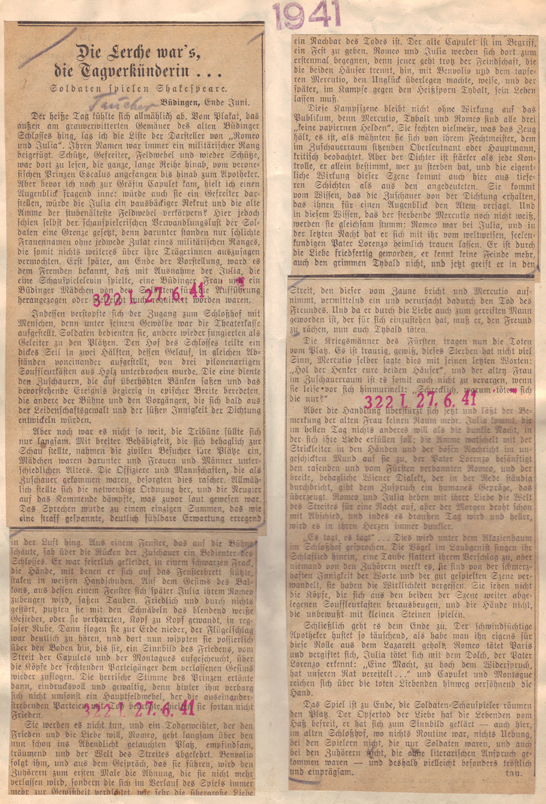 1941
Die Lerche war's,
die Tagverkünderin . . .
Soldaten spielen Shakespeare.
Büdingen, Ende Juni.
Der heiße Tag kühlte sich allmählich ab. Vom Plakat, das
außen am grauverwitterten Gemäuer des alten Büdinger
Schlosses hing, las ich die Liste der Darsteller von „Romeo
und Julia“. Ihren Namen war immer ein militärischer Rang
beigefügt. Schütze, Gefreiter, Feldwebel und wieder Schütze,
war dort zu lesen, die ganze, lange Reihe hinab, vom verone-
sischen Prinzen Escalus angefangen bis hinab zum Apotheker.
Aber bevor ich noch zur Gräfin Capulet kam, hielt ich einen
Augenblick fragend inne: würde auch sie ein Gefreiter dar-
stellen, würde die Julia ein pausbäckiger Rekrut und die alte
Amme der stubenälteste Feldwebel verkörpern? Hier jedoch
schien selbst der schauspielerischen Verwandlungslust der Sol-
daten eine Grenze gesetzt, denn darunter standen nur schlichte
Frauennamen ohne jedwede Zutat eines militärischen Ranges,
die somit nichts weiteres über ihre Trägerinnen auszusagen
vermochten. Erst später, am Ende der Vorstellung, ward es
dem Fremden bekannt, daß mit Ausnahme der Julia, die
eine Schauspielerin spielte, eine Büdinger Frau und ein
Büdinger Mädchen von der Mitwirkung
herangezogen oder worden waren.
322 I. 27. 6. 41
Indessen verstopfte sich der Zugang zum Schloßhof mit
Menschen, denn unter seinem Gewölbe war die Theaterkasse
aufgestellt. Soldaten bedienten sie, andere wieder fungierten als
Geleiter zu den Plätzen. Den Hof des Schlosses teilte ein
dickes Seil in zwei Hälften, dessen Gelauf, in gleichen Ab-
ständen voneinander aufgestellt, von drei plakatartigen
Souffleurkästen aus Holz unterbrochen wurde. Die eine diente
den Zuschauern, die auf überhöhten Bänken saßen und das
bevorstehende Ereignis begierig in epischer Breite beredeten,
die andere der Bühne und den Vorgängen, die sich bald aus
der Leidenschaftsgewalt und der süßen Innigkeit der Dichtung
entwickeln würden.
Aber noch war es nicht so weit, die Tribüne füllte sich
nur langsam. Mit breiter Behäbigkeit, die sich behaglich zur
Schau stellte, nahmen die zivilen Besucher ihre Plätze ein,
Mädchen waren darunter und Frauen und Männer unter-
schiedlichen Alters. Die Offiziere und Mannschaften, die als
Zuschauer gekommen waren, besorgten dies rascher. Allmäh-
lich stellte sich die notwendige Ordnung her, und die Neugier
auf das Kommende dämpfte, was zuvor laut gewesen war.
Das Sprechen wurde zu einem einzigen Summen, das wie
eine straff gespannte, deutlich fühlbare Erwartung erregend
in der Luft hing. Aus einem Fenster, das auf die Bühne
schaute, sah über die Rücken der Zuschauer ein Bedienter des
Schlosses. Er war feierlich gekleidet, in einen schwarzen Frack,
die Hände, mit denen er sich auf das Fensterbrett stützte,
staken in weißen Handschuhen. Auf dem Gesims des Bal-
kons, aus dessen einem Fenster sich später Julia ihrem Romeo
zuneigen wird, saßen Tauben. Friedlich und durch nichts
gestört, putzten sie mit den Schnäbeln das blendend weiße
Gefieder, oder sie verharrten, Kopf zu Kopf gewandt, in reg-
loser Ruhe. Dann flogen sie zur Erde nieder, der Flügelschlag
war deutlich zu hören, und dort nun wippten sie possierlich
über den Boden hin, bis sie, ein Sinnbild des Friedens, vom
Streit der Capulets und der Montagues aufgescheucht, über
die Köpfe der fechtenden Parteigänger dem verlassenen Gesims
wieder zuflogen. Die herrische Stimme des Prinzen ertönte
dann, eindrucksvoll und gewaltig, denn hinter ihm verbarg
sich nicht umsonst ein Hauptfeldwebel, der die auseinander-
treibenden sie fortan nicht
Frieden
322 I. 27. 6. 41
Sie werden es nicht tun, und ein Todgeweihter, der den
Frieden und die Liebe will, Romeo, geht langsam über den
nun schon ins Abendlicht getauchten Platz, empfindsam,
träumend und der Welt des Streites abgekehrt. Benvolio
folgt ihm, und aus dem Gespräch, das sie führen, wird den
Zuhörern zum ersten Male die Ahnung, die sie nicht mehr
verlassen wird, sondern die sich im Verlauf des Spiels immer
mehr zur Gewißheit verdichtet, wie sehr die überaroße Liebe
ein Nachbar des Todes ist. Der alte Capulet ist im Begriff,
ein Fest zu geben. Romeo und Julia werden sich dort zum
erstenmal begegnen, denn jener geht trotz der Feindschaft, die
die beiden Häuser trennt, hin, mit Benvolio und dem tapfe-
ren Mercutio, den Unglück überlegen machte, weise, und der
später, im Kampf gegen den Heißsporn Tybalt, sein Leben
lassen muß.
Diese Kampfszene bleibt nicht ohne Wirkung auf das
Publikum, denn Mercutio, Tybalt und Romeo sind alle drei
„keine papernen Helden“. Sie fechten vielmehr, was das Zeug
hält, es ist, als wähnten sie sich von ihrem Fechtmeister, dem
im Zuschauerraum sitzenden Oberleutnant oder Hauptmann,
kritisch beobachtet. Aber der Dichter ist stärker als jede Kon-
trolle, er allein bestimmt, wer zu sterben hat, und die eigent-
liche Wirkung dieser Szene kommt auch hier aus tiefe-
ren Schichten als aus den angedeuteten. Sie kommt
vom Wissen, das die Zuschauer von der Dichtung erhalten,
das ihnen für einen Augenblick den Atem verjagt. Und
in diesem Wissen, das der sterbende Mercutio noch nicht weiß,
werden sie gleichsam stumm: Romeo war bei Julia, und in
der letzten Nacht hat er sich mit ihr vom weltweisen, seelen-
kundigen Pater Lorenzo heimlich trauen lassen. Er ist durch
die Liebe friedfertig geworden, er kennt keine Feinde mehr,
auch den grimmen Tybald nicht, und jetzt greift er in den
Streit, den dieser vom Zaune bricht und Mercutio auf-
nimmt, vermittelnd ein und verursacht dadurch den Tod des
Freundes. Und da er durch die Liebe auch zum gereiften Mann
geworden ist, der für sich einzustehen hat, muß er, den Freund
zu rächen, nun auch Tybald töten.
Die Kriegsmänner des Fürsten tragen nun die Toten
vom Platz. Es ist traurig, gewiß, dieses Sterben hat nicht viel
Sinn, Mercutio selber sagte das mit seinen letzten Worten:
„Hol der Henker eure beiden Häuser“, und der alten Frau
im Zuschauerraum ist es somit auch nicht zu verargen, wenn
sie leise vor sich hinmurmelt: „Schrecklich, warum töten sich
die nur?“
322 I. 27. 6. 41
Aber die Handlung überstürzt sich jetzt und läßt der Be-
merkung der alten Frau keinen Raum mehr. Julia kommt, die
im hellen Tag nichts anderes will als die dunkle Nacht, in
der sich ihre Liebe erfüllen soll; die Amme watschelt mit der
Strickleiter in den Händen und der bösen Nachricht im un-
geschickten Mund auf sie zu, der Pater Lorenzo besänftigt
den rasenden und vom Fürsten verbannten Romeo, und der
breite, behagliche Wiener Dialekt, der in der Rede ständig
durchbricht, gibt dem Zuspruch ein humanes Gepräge, das
überzeugt. Romeo und Julia heben mit ihrer Liebe die Welt
des Streites für eine Nacht auf, aber der Morgen droht schon
mit Abschied, und indes es draußen Tag wird und heller,
wird es in ihren Herzen immer dunkler.
„Es tagt, es tagt“ . . . Dies wird unter dem Akazienbaum
im Schloßhof gesprochen. Die Vögel im Laubgezelt singen ihr
Schlaflied hinein, eine Taube flattert ihrem Verschlag zu, aber
niemand von den Zuhörern merkt es, sie sind von der schmerz-
haften Innigkeit der Worte und der gut gespielten Szene ver-
wandelt, sie haben die Wirklichkeit vergessen. Sie sehen nicht
die Köpfe, die sich aus den beiden der Szene weiter abge-
legenen Souffleurkasten herausbeugen, und die Hände nicht,
die unbewußt mit kleinen Steinen spielen.
Schließlich geht es dem Ende zu. Der schwindsüchtige
Apotheker hustet so täuschend, als habe man ihn eigens für
diese Rolle aus dem Lazarett geholt, Romeo tötet Paris
und vergiftet sich, Julia tötet sich mit dem Dolch, der Pater
Lorenzo erkennt: „Eine Macht, zu hoch dem Widerspruch,
hat unsren Rat vereitelt . . .“ und Capulet und Montague
reichen sich über die toten Liebenden hinweg versöhnend die
Hand.
Das Spiel ist zu Ende, die Soldaten-Schauspieler räumen
den Platz. Der Opfertod der Liebe hat die Lebenden vom
Haß befreit, er hat sich zum Sinnbild geklärt — auch hier,
im alten Schloßhof, wo nichts Routine war, nichts Uebung,
bei den Spielern nicht, die nur Soldaten waren, und auch
bei den Zuhörern nicht, die ohne literarischen Anspruch ge-
kommen waren — und deshalb vielleicht besonders festlich
und einprägsam.
tau.